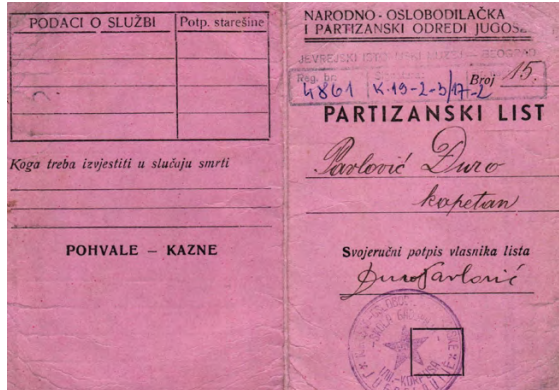 PODACI O SLUŽBI
Potp. starešine
Koga treba izvjestiti u slučaju smrti
POHVALE – KAZNE
NARODNO-OSLOBODILAČKA
I PARTIZANSKI ODREDI JUGOSL
JEVREJSKI ISTORIJSKI MUZEJ – BEOGRAD
Reg. br.
4861 K-19-2-3/17-2
Broj 15.
PARTIZANSKI LIST
Pavlović Đuro
kapetan
Svojeručni potpis vlasnika lista
Đuro Pavlović